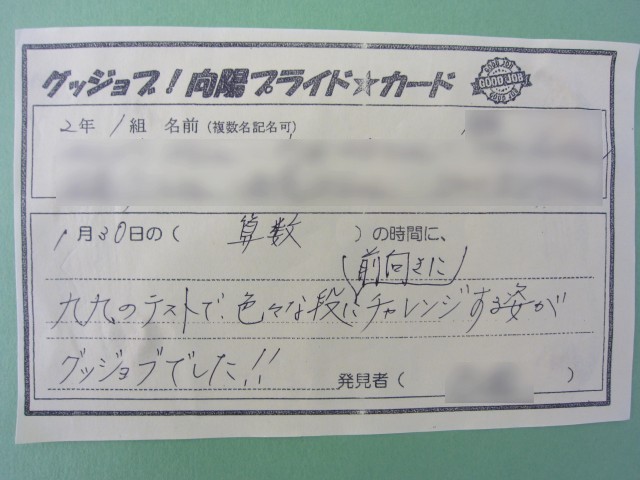 グッジョブ！向陽プライド☆カード
GOOD JOB
GOOD JOB
GOOD JOB
2年 1組 名前（複数名記名可）
1月30日の（ 算数 ）の時間に、
前向きに
九九のテストで、色々な段にチャレンジする姿が
グッジョブでした!!
発見者（ ）